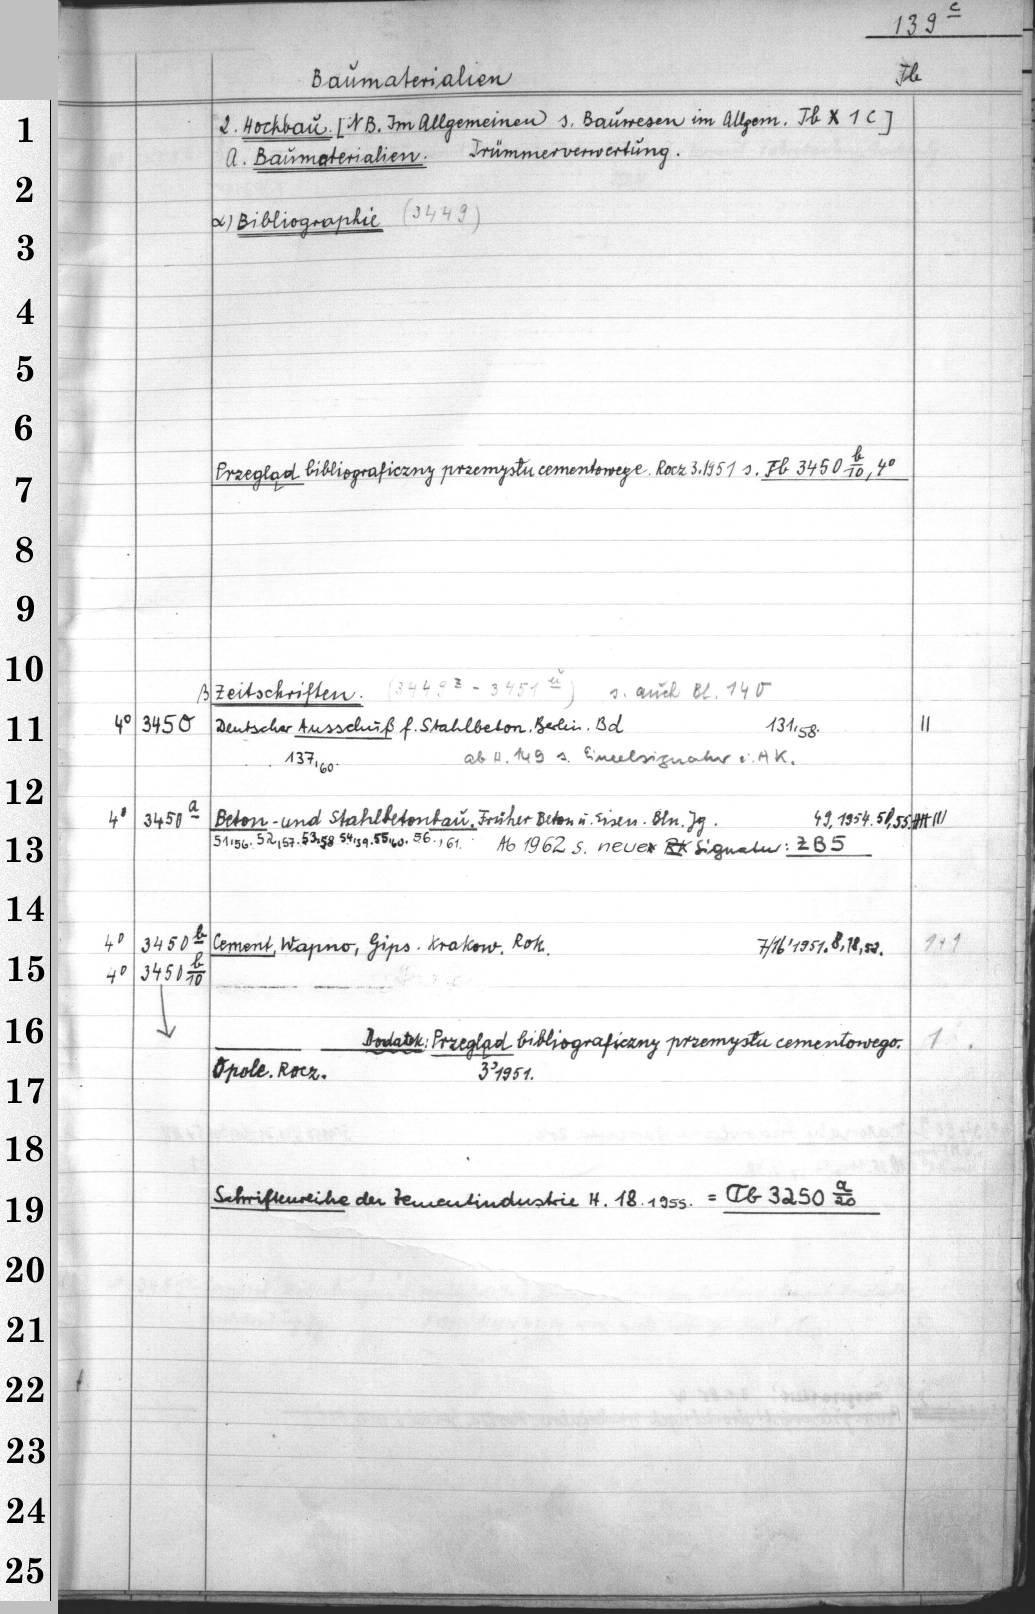 139 c
Baumaterialien Tb
1 2. Hochbau. [NB. Im Allgemeinen s. Bauwesen im Allgem. Tb X 1 C]
A. Baumaterialien. Trümmerverwertung.
2
α) Bibliographie (3449)
3
4
5
6
Przegląd bibliograficzny przemysłu cementowego. Rocz 3.1951 s. Tb 3450 b/10, 4°
7
8
9
10
β Zeitschriften. (3449 z - 3451 u) s. auch Bl. 140
11 4° 3450 Deutscher Ausschuß f. Stahlbeton. Berlin. Bd 131,58. II
137,60. ab H. 149 s. Einzelsignatur i. AK.
12
4° 3450 a Beton- und Stahlbetonbau. Früher Beton u. Eisen. Bln. Jg. 49, 1954. 50,55
13 51,56. 52,57. 53,58 54,59. 55,60. 56,61. Ab 1962 s. neue Signatur: ZB5
14
4° 3450 b Cement, Wapno, Gips. Krakow. Rok. 7/16 1951. 8,18,52. 1+1
15 4° 3450 b/10
16 Dodatek: Przegląd bibliograficzny przemysłu cementowego. 1
Opole. Rocz. 3 1951.
17
18
19 Schriftenreihe der Zementindustrie H. 18. 1955. = Tb 3250 a/20
20
21
22
23
24
25